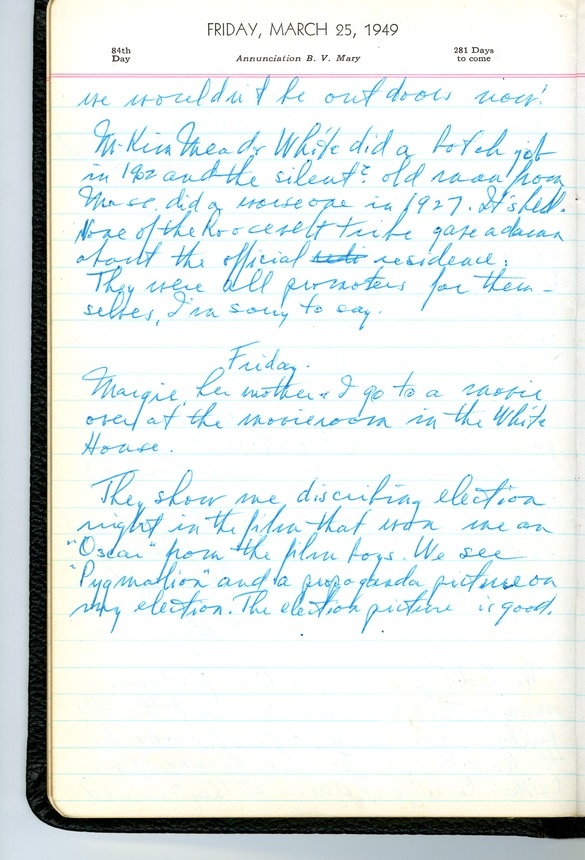 FRIDAY, MARCH 25, 1949
84th
Day
Annunciation B. V. Mary
281 Days
to come
we wouldn't be out doors now!
McKim Mead & White did a botch job
in 1902 and the silent? old man from
Mass. did a worse one in 1927. It's hell.
None of the Roosevelt tribe gave a damn
about the official residence.
They were all promoters for them-
selves, I'm sorry to say.
Friday.
Margie, her mother & I go to a movie
over at the movieroom in the White
House.
They show me discribing election
night in the film that won me an
"Oscar" from the film boys. We see
"Pygmallion" and a propaganda picture on
my election. The election picture is good.